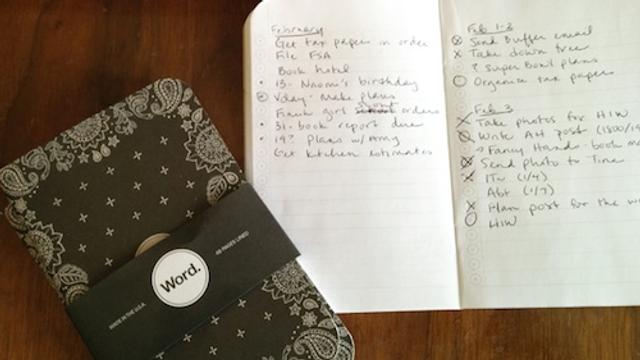 February
Get tax papers in order
File FSA
Book hotel
13- Naomi's birthday
Vday- Make plans
Finish girl scout orders
31- book report due
19? Plans w/Amy
Get kitchen estimates
Feb 1-3
Send Buffer email
Take down tree
? Super Bowl plans
Organize tax papers
Feb 3
Take photos for HIW
Write AH post (1500/19
Fancy Hands - book
Send photo to Time
ITV (1/4)
Abt (1/7)
Plan post for the
HIW
Word.
48 PAGES LINED
MADE IN THE U.S.A.